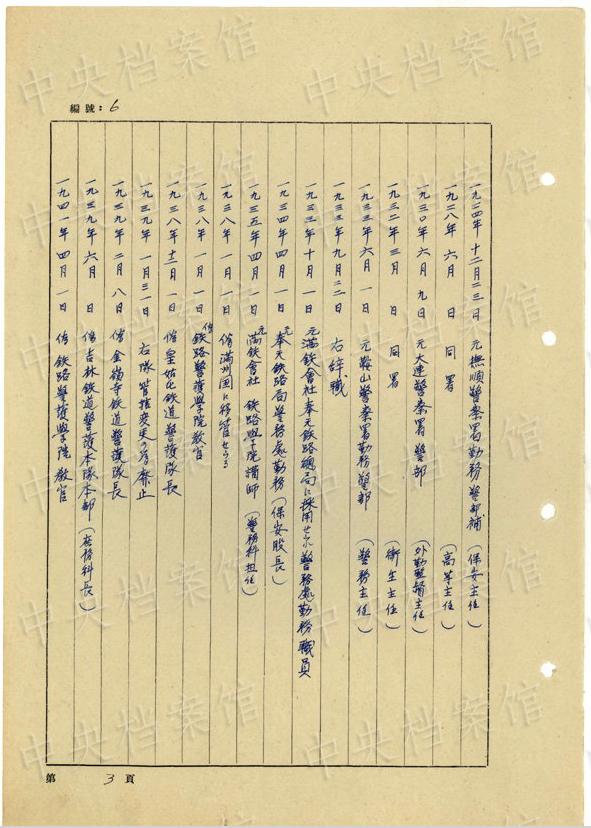 編號:6
一九二四年 十二月二三日 元撫順警察署勤務 警部補 (保安主任)
一九二八年 六月 日 同署 (高等主任)
一九三〇年 六月 九日 元大連警察署 警部 (外勤監督主任)
一九三二年 三月 日 同署 (衛生主任)
一九三三年 六月 一日 元鞍山警察署勤務 警部 (警務主任)
一九三三年 九月二二日 右辞職
一九三三年 十月 一日 元滿鉄會社 奉天鉄路總局に採用せられ 警務處勤務 職員
一九三四年 四月 一日 元奉天鉄路局警務處勤務 (保安股長)
一九三五年 四月 一日 元滿鉄會社 鉄路學院講師 (警務科担任)
一九三八年 一月 一日 偽滿州国に移管せらる
一九三八年 一月 一日 偽鉄路警護學院教官
一九三八年 十二月 一日 偽 鉄道警護隊長
一九三九年 一月三一日 右隊管轄変更の為廃止
一九三九年 二月 八日 偽金嶺寺鉄道警護隊長
一九三九年 六月 日 偽吉林鉄道警護本隊本部 (庶務科長)
一九四一年 四月 一日 偽鉄路警護學院教官
第 3 頁
中央档案馆